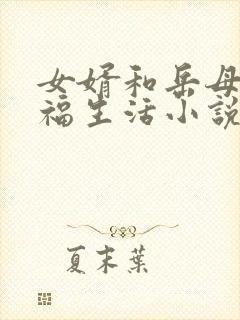 女婿和岳母
福生活小説
夏末葉